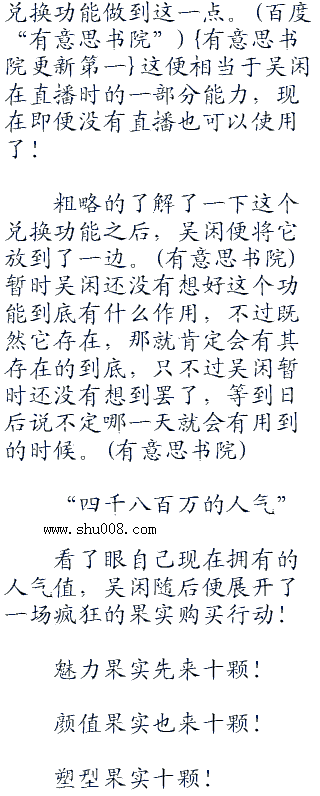 兑换功能做到这一点。(百度
“有意思书院”){有意思书
院更新第一}这便相当于吴闲
在直播时的一部分能力，现
在即便没有直播也可以使用
了！
粗略的了解了一下这个
兑换功能之后，吴闲便将它
放到了一边。(有意思书院)
暂时吴闲还没有想好这个功
能到底有什么作用，不过既
然它存在，那就肯定会有其
存在的到底，只不过吴闲暂
时还没有想到罢了，等到日
后说不定哪一天就会有用到
的时候。(有意思书院)
“四千八百万的人气”
www.shu008.com
看了眼自己现在拥有的
人气值，吴闲随后便展开了
一场疯狂的果实购买行动！
魅力果实先来十颗！
颜值果实也来十颗！
塑型果实十颗！